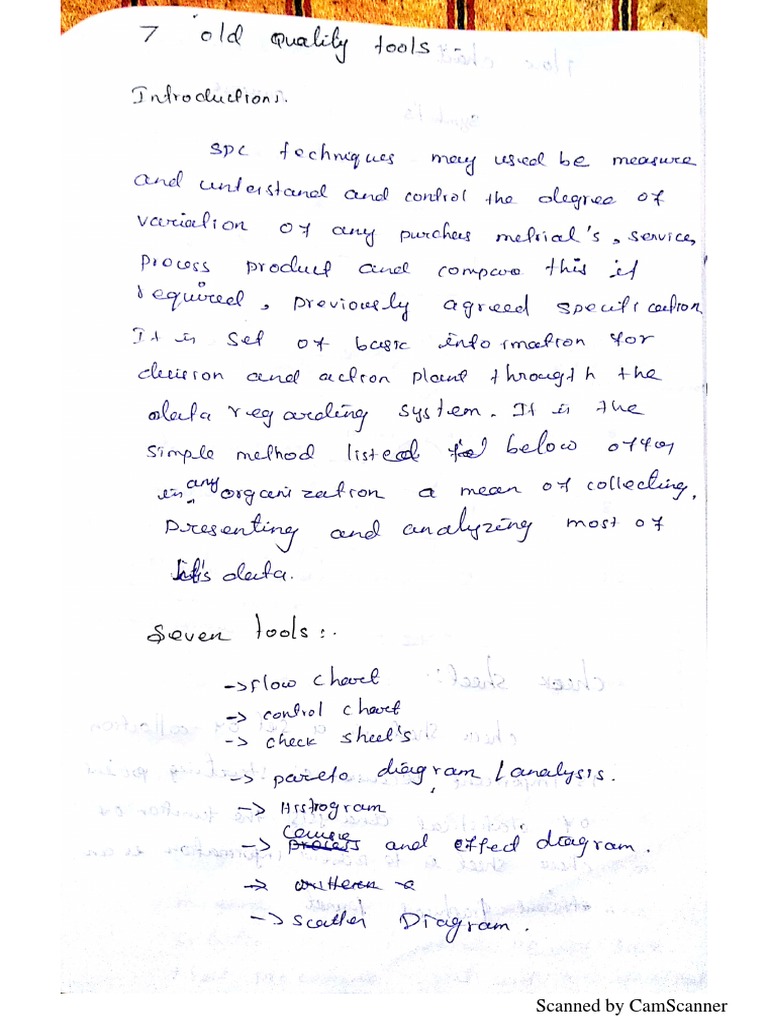 7 old Quality tools
Introductions.
SPC techniques may used be measure
and understand and control the degree of
variation of any purches metrial's, service,
process product and compare this if
required, previously agreed specification
It is set of basic information for
decision and action plant through the
data regarding system. It is the
simple method listed below offer
in any organization a mean of collecting,
presenting and analyzing most of
it's data.
Seven tools:.
-> flow chart
-> control chart
-> check sheet's
-> pareto diagram / analysis.
-> Histrogram
-> Causie and effed diagram.
-> scatter Diagram.
Scanned by CamScanner